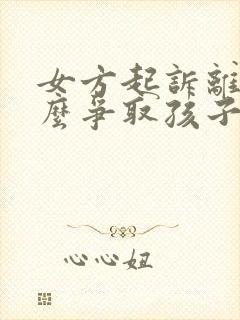 女方起訴離
麼爭取孩子
心心妞